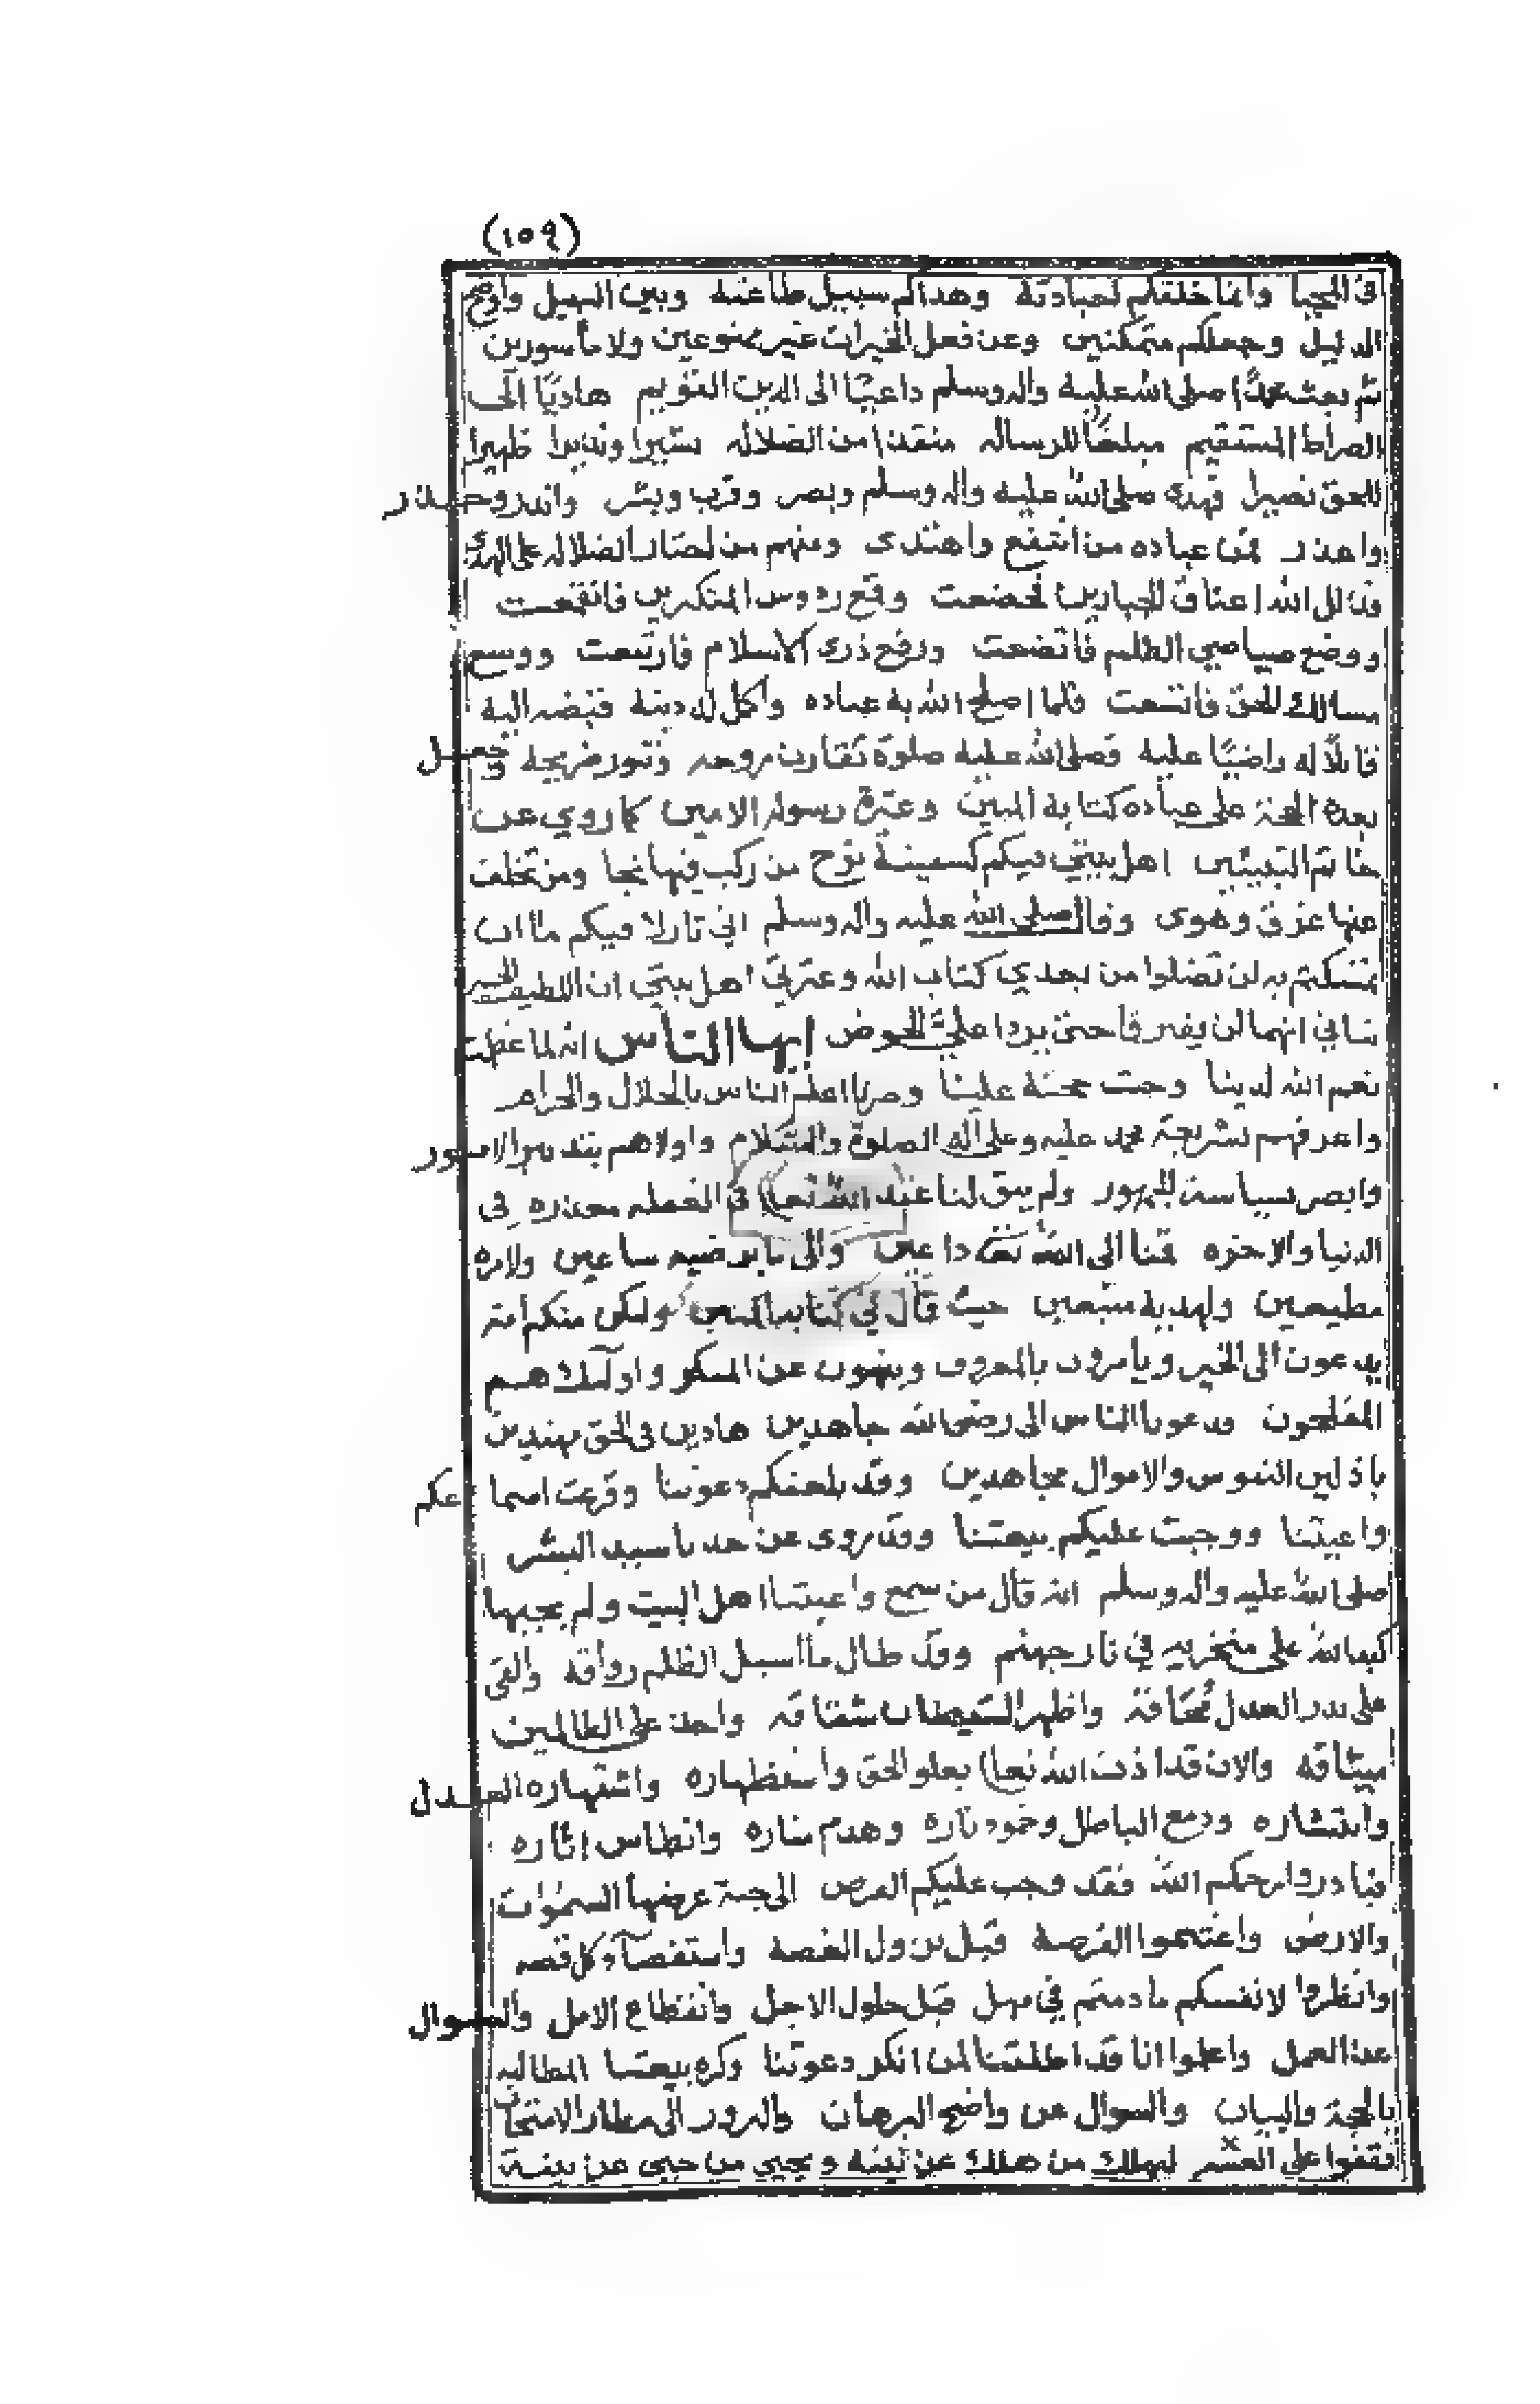 (١٥٩)
في المحيا وانما خلقكم لعبادته وهداكم سبيل طاعته وبين السبيل واوضح
الدليل وجعلكم متمكنين وعن فعل الخيرات غير ممنوعين ولا مأسورين
ثم بعث محمدًا صلى الله عليه واله وسلم داعيًا الى الدين القويم هاديًا الى
الصراط المستقيم مبلغًا للرساله منقذا من الضلاله بشيرا ونذيرا ظهيرا
للحق نصيرا صلى الله عليه واله وسلم وبصر وقرب وبشر وانذر وحذر
واعذر فمن عباده من انتفع واهتدى ومنهم من اختار الضلاله على الهدى
فذلل الله اعناق الجبارين فخضعت وقمع روس المتكبرين فانقمعت
ووضع صياصي الظلم فاتضعت ورفع ذرى الاسلام فارتفعت ووسع
مسالك الحق فاتسعت فلما اصلح الله به عباده واكمل له دينه قبضه اليه
قابلًا له راضيًا عليه فصلى الله عليه صلوة تقارن روحه وتنور ضريحه وجعل
بعده الحجة على عباده كتابه المبين وعترة رسوله الامين كما روي عن
خاتم النبيئين اهل بيتي فيكم كسفينة نوح من ركب فيها نجا ومن تخلف
عنها غرق وهوى وقال صلى الله عليه واله وسلم اني تارك فيكم ما ان
تمسكتم به لن تضلوا من بعدي كتاب الله وعترتي اهل بيتي ان اللطيف الخبير
نباني انهما لن يفترقا حتى يردا علي الحوض ايها الناس انه لما عظمت
نعم الله لدينا وجلت محنته علينا وصرنا اعلم الناس بالحلال والحرام
واعرفهم بشريعة محمد عليه وعلى آله الصلوة والسلام واولاهم بتدبير الامور
وابصر بسياسة الجمهور ولم يبق لنا عند الله تعالى في الغفله معذره في
الدنيا والاخره قمنا الى الله تعالى داعين والى ما يرضيه ساعين ولامره
مطيعين ولهديه متبعين حيث قال في كتابه المبين ولتكن منكم امة
يدعون الى الخير ويامرون بالمعروف وينهون عن المنكر واولئك هم
المفلحون ودعونا الناس الى رضى الله جاهدين هادين في الحق مهتدين
باذلين النفوس والاموال مجاهدين وقد بلغتكم دعوتنا وقرعت اسماعكم
واعيتنا ووجبت عليكم بيعتنا وقد روى عن جدنا سيد البشر
صلى الله عليه واله وسلم انه قال من سمع واعيتنا اهل البيت ولم يجبها
كبه الله على منخريه في نار جهنم وقد طال ما اسبل الظلم رواقه والقى
على بدر العدل محاقه واظهر الشيطان شقاقه واخذ على الظالمين
ميثاقه والان قد اذن الله تعالى بعلو الحق واستظهاره واشتهار العدل
وانتشاره ودمغ الباطل وخمود ناره وهدم مناره وانطماس اثاره
فبادروا رحمكم الله فقد وجب عليكم الفرض الى جنة عرضها السموات
والارض واغتنموا الفرصة قبل نزول الغصه واستقصاء كل قصه
وانظروا لانفسكم ما دمتم في مهل قبل حلول الاجل وانقطاع الامل والسوال
عن العمل واعلموا انا قد اطلقنا لمن انكر دعوتنا وكره بيعتنا المطالبه
بالحجة والبيان والسوال عن واضح البرهان والبروز الى مطار الامتحان
ليهلك من هلك عن بينه ويحيى من حيى عن بينة